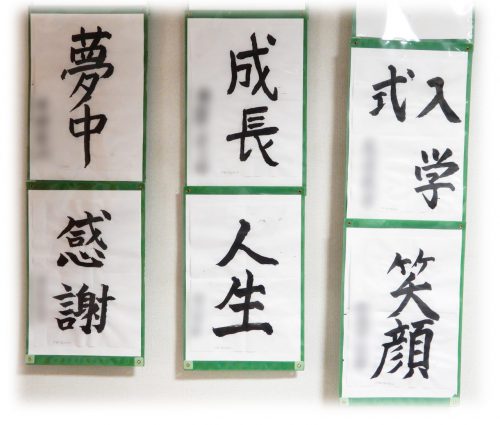 夢中
感謝
成長
人生
入学
式
笑顔